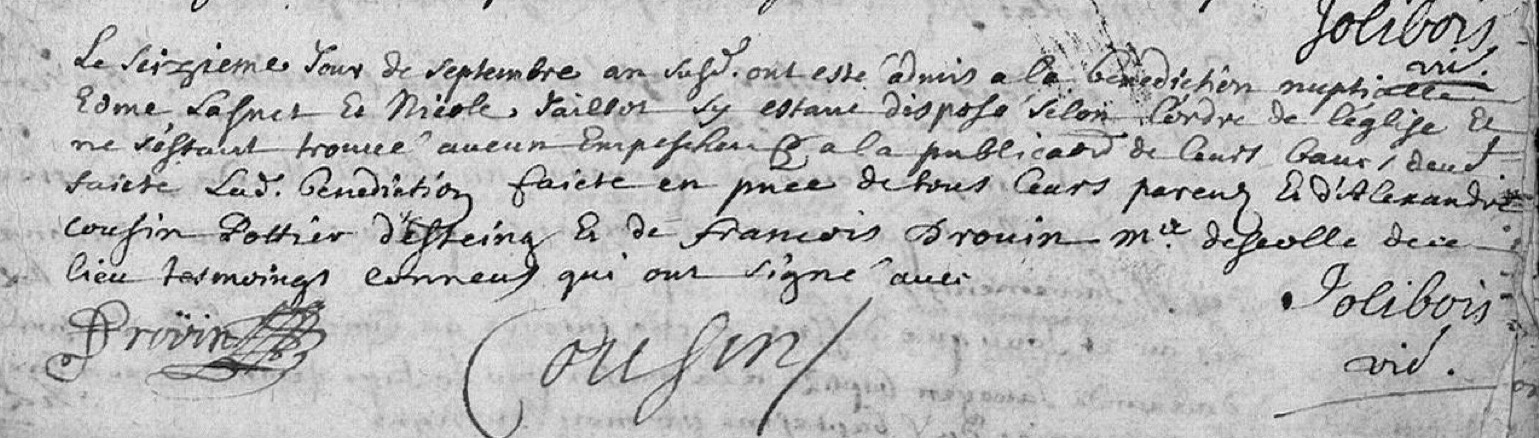 Jolibois
vic.
Le seizieme Jour de septembre an susd. ont esté admis a la benediction nuptialle
Edme Lasnet Et Nicole Taillot sy estant disposé selon l'ordre de l'église Et
ne s'estant trouué aucun Empeschem a la publicaõn de leurs bans,
faicte Lad. benediction faicte en pñce de tous leurs parens Et d'Alexandre
cousin Pottier d'esteing Et de francois Drouin me. descolle de ce
lieu tesmoings conneus qui ont signé auec
Jolibois
vic.
Drouin
Cousin